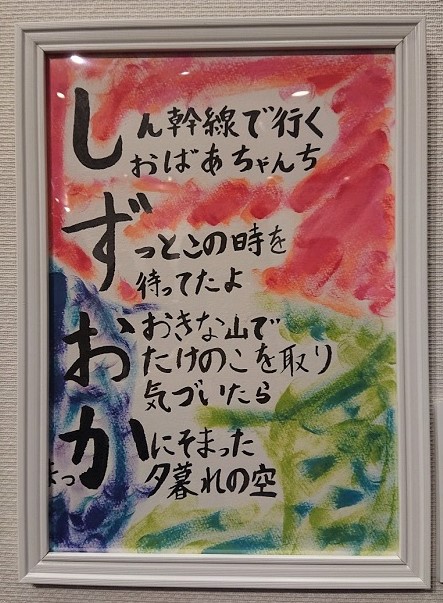 しん幹線で行く
おばあちゃんち
ずっとこの時を
待ってたよ
おおきな山で
たけのこを取り
気づいたら
まっかにそまった
夕暮れの空